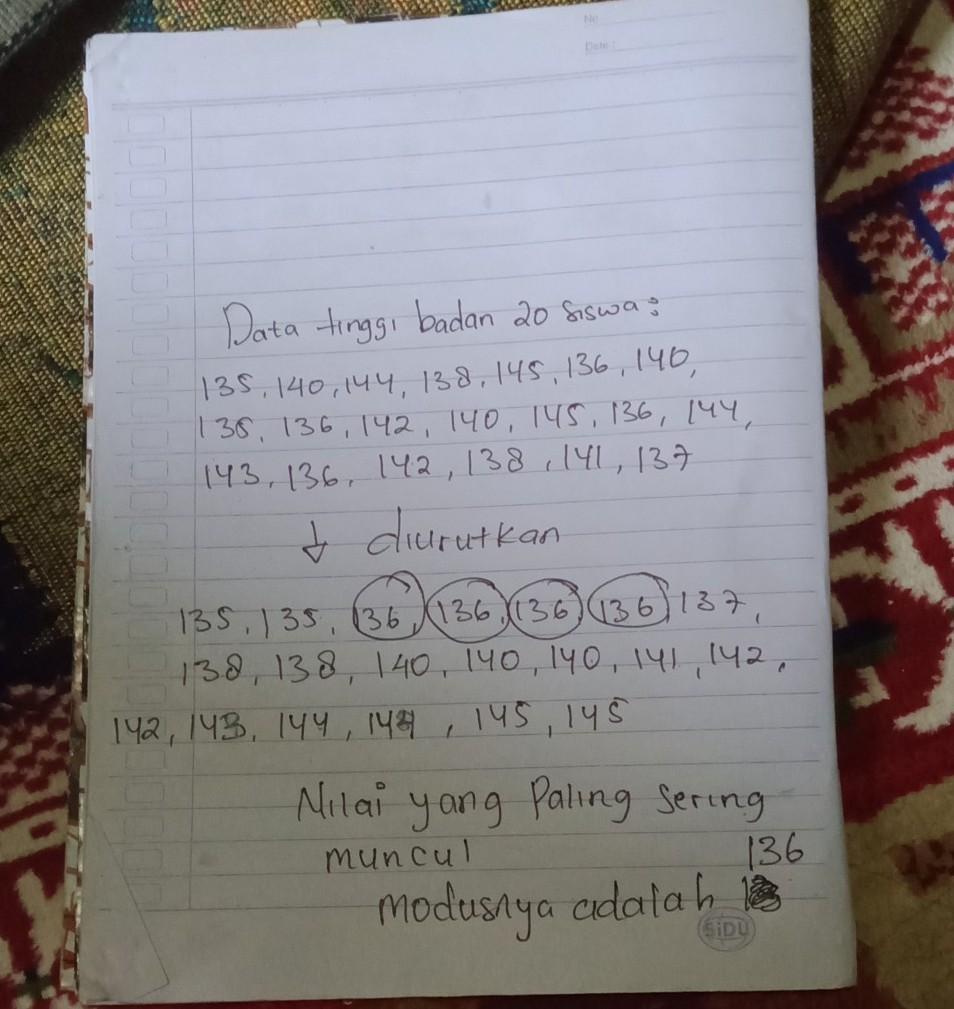 No
Date :
Data tinggi badan 20 siswa :
135, 140, 144, 138, 145, 136, 140,
135, 136, 142, 140, 145, 136, 144,
143, 136, 142, 138, 141, 137
↓ diurutkan
135, 135, 136, 136, 136, 136, 137,
138, 138, 140, 140, 140, 141, 142,
142, 143, 144, 144, 145, 145
Nilai yang Paling sering
muncul
136
modusnya adalah
SiDU